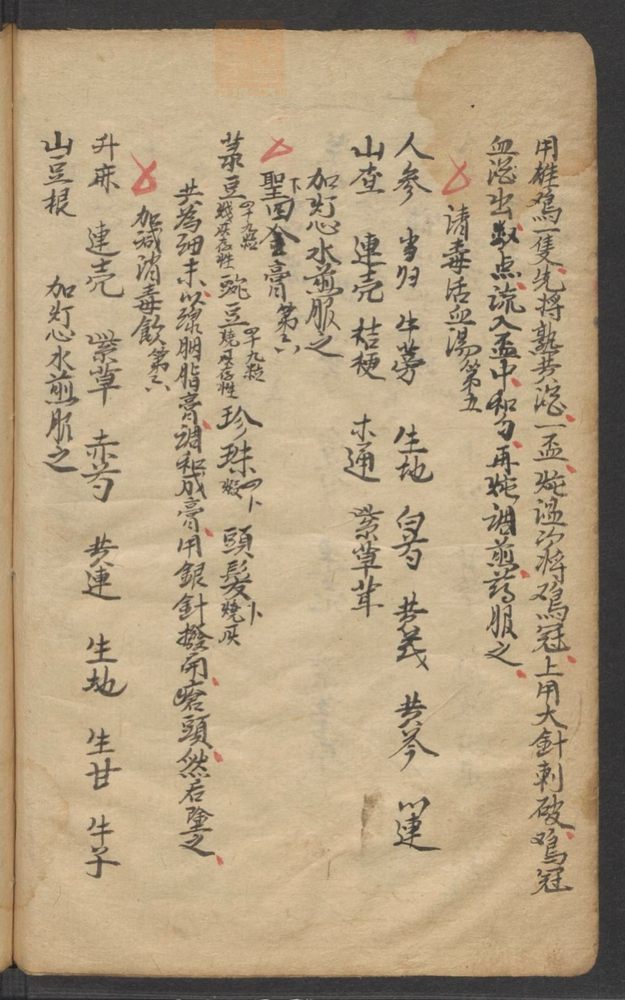 用雄鸡一隻先將熟黄酒一盃炖温次將鸡冠上用大針刺破鸡冠
血滴出數点流入盃中和匀再炖調煎药服之
清毒活血湯第五
人參 当归 牛蒡 生地 白芍 黄芪 黄芩 川連
山查 連壳 桔梗 木通 紫草茸
加灯心水煎服之
下
聖四金膏第六
菉豆四十九粒燒灰存性 豌豆四十九粒燒灰存性 珍珠 頭髮燒灰
共為细末以綠胭脂膏調和成膏用銀針撥開瘡頭然后塗之
加减消毒飲第六
升麻 連壳 紫草 赤芍 黄連 生地 生甘 牛子
山豆根 加灯心水煎服之